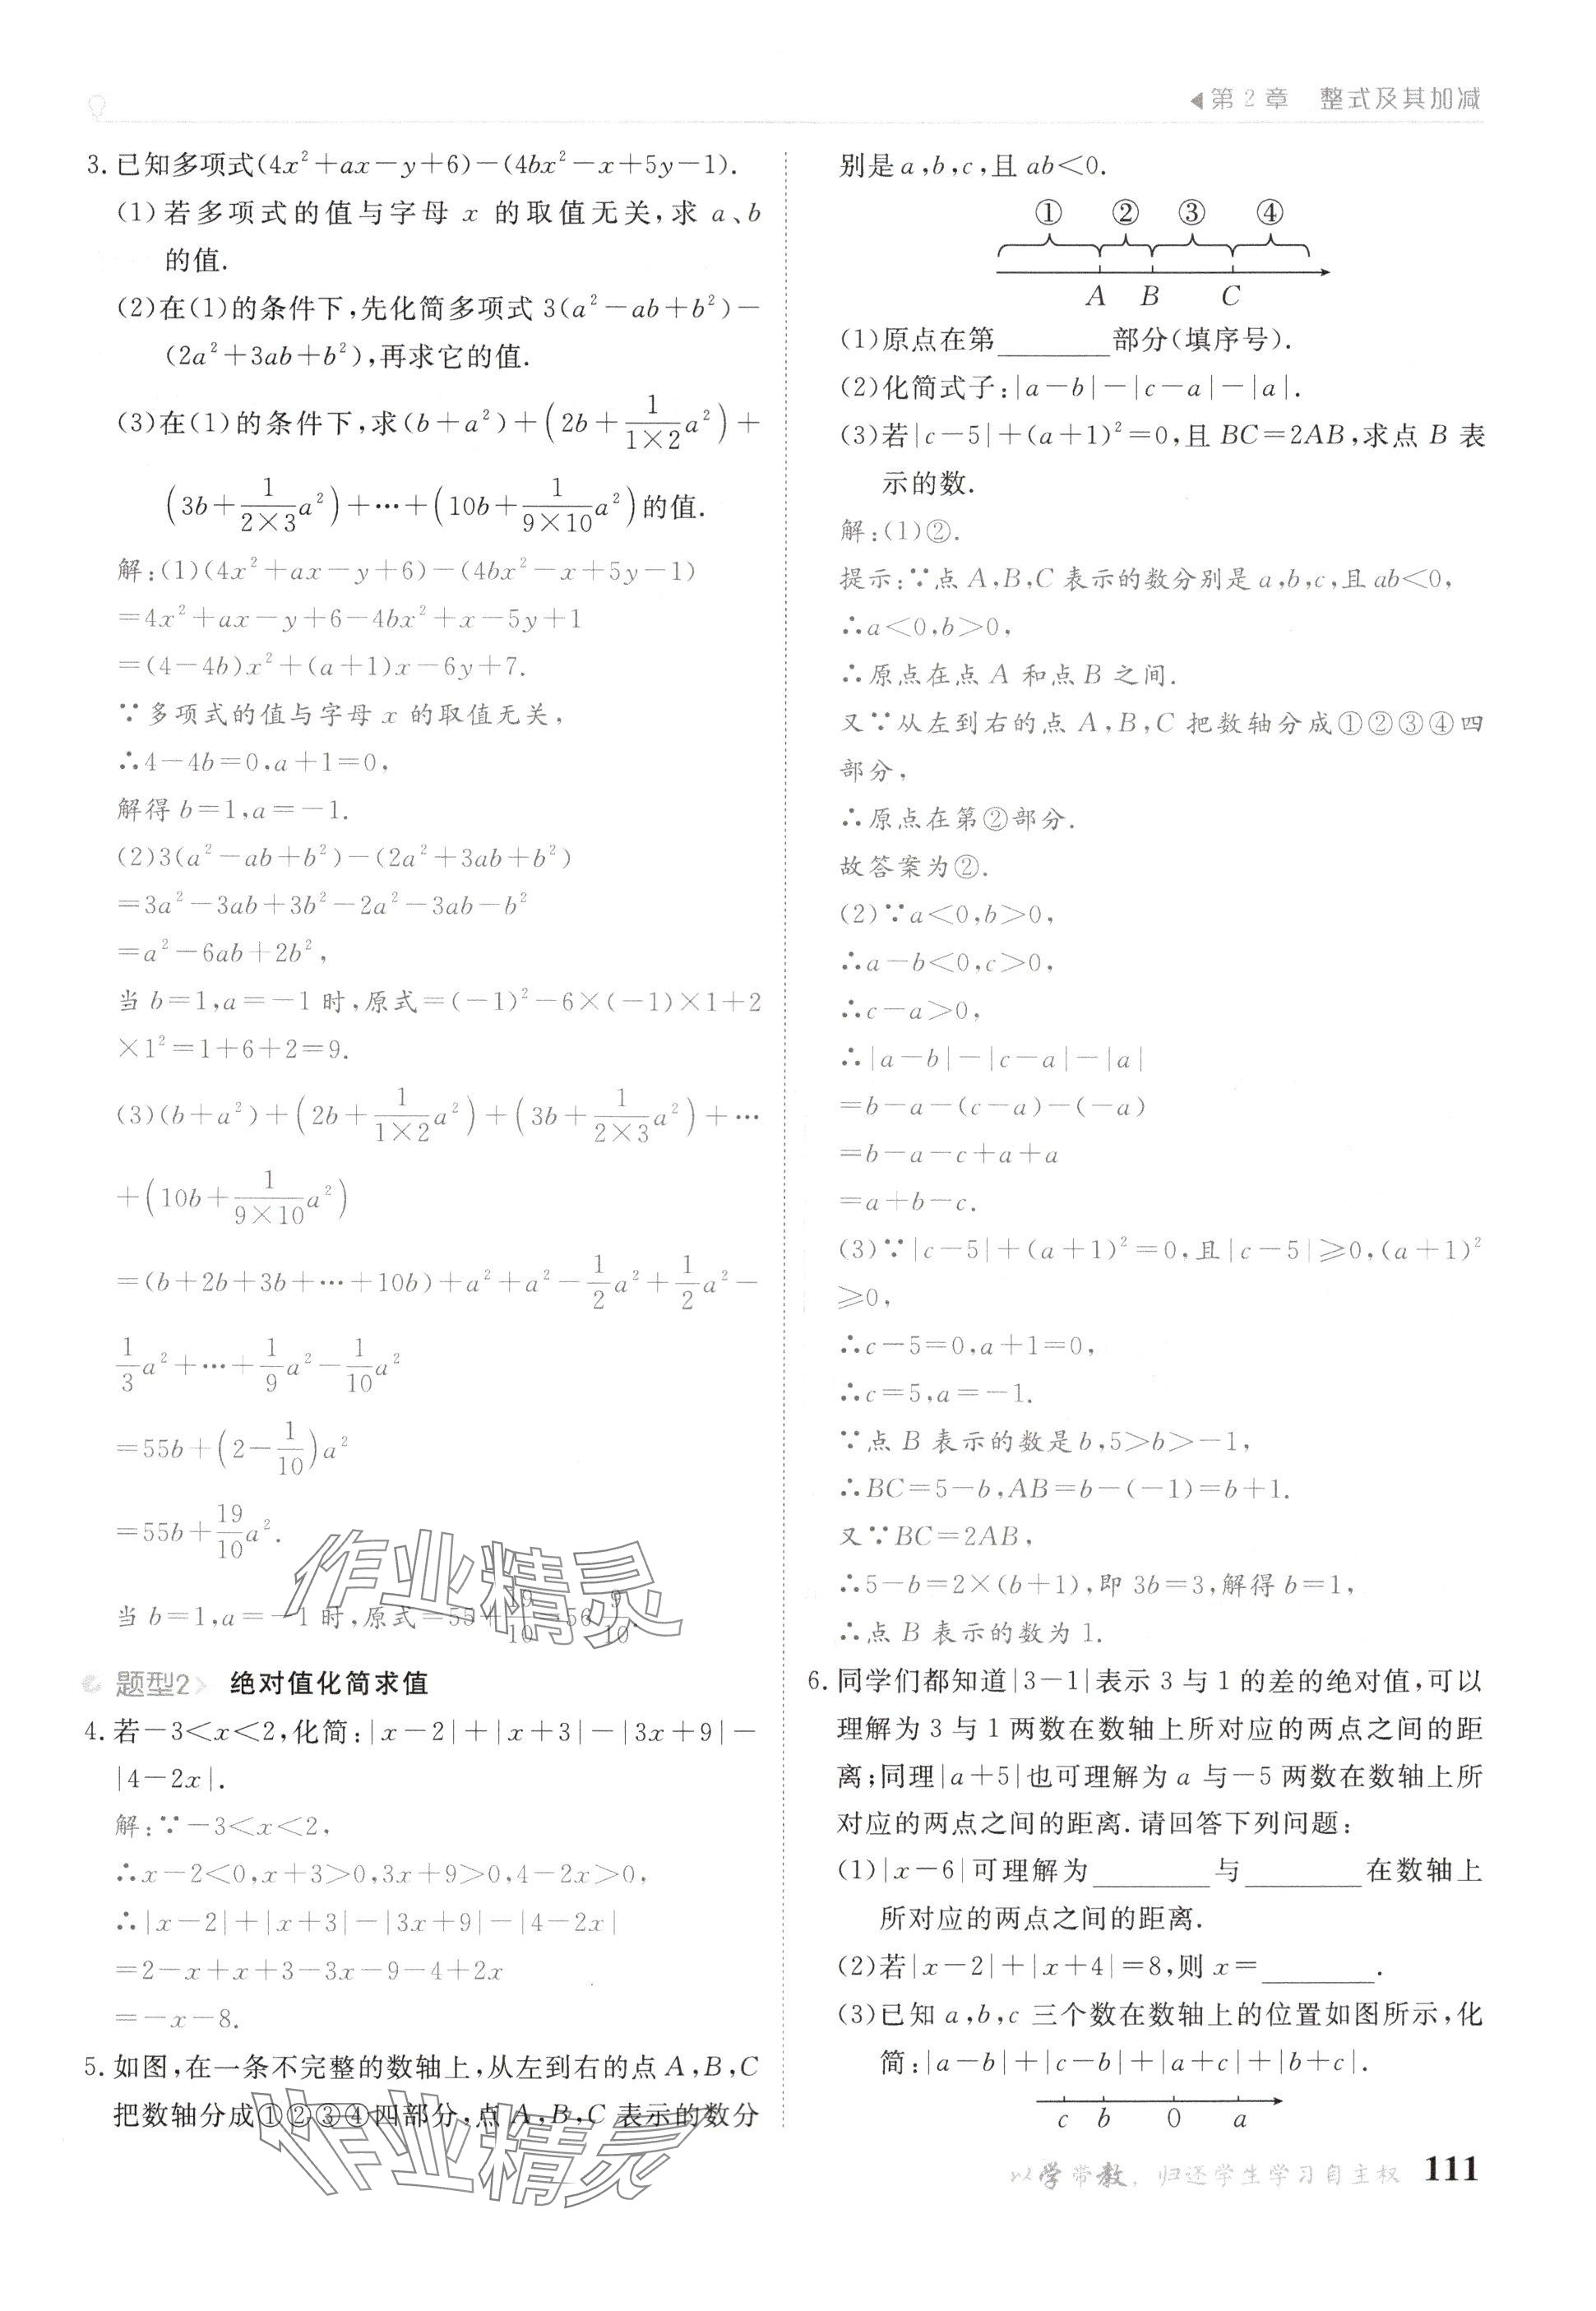 第2章 整式及其加减
3. 已知多项式(4x²+ax-y+6)-(4bx²-x+5y-1).
(1)若多项式的值与字母 x 的取值无关,求 a、b
的值.
(2)在(1)的条件下,先化简多项式 3(a²-ab+b²)-
(2a²+3ab+b²),再求它的值.
(3)在(1)的条件下,求(b+a²)+(2b+\frac{1}{1×2}a²)+
(3b+\frac{1}{2×3}a²)+…+(10b+\frac{1}{9×10}a²)的值.
解:(1)(4x²+ax-y+6)-(4bx²-x+5y-1)
=4x²+ax-y+6-4bx²+x-5y+1
=(4-4b)x²+(a+1)x-6y+7.
∵多项式的值与字母 x 的取值无关,
∴4-4b=0,a+1=0,
解得 b=1,a=-1.
(2)3(a²-ab+b²)-(2a²+3ab+b²)
=3a²-3ab+3b²-2a²-3ab-b²
=a²-6ab+2b²,
当 b=1,a=-1 时,原式=(-1)²-6×(-1)×1+2
×1²=1+6+2=9.
(3)(b+a²)+(2b+\frac{1}{1×2}a²)+(3b+\frac{1}{2×3}a²)+…
+(10b+\frac{1}{9×10}a²)
=(b+2b+3b+…+10b)+a²+a²-\frac{1}{2}a²+\frac{1}{2}a²-
\frac{1}{3}a²+…+\frac{1}{9}a²-\frac{1}{10}a²
=55b+(2-\frac{1}{10})a²
=55b+\frac{19}{10}a².
当 b=1,a=-1 时,原式=55+\frac{19}{10}=56\frac{9}{10}.
作业精灵
题型2 绝对值化简求值
4. 若-3<x<2,化简:|x-2|+|x+3|-|3x+9|-
|4-2x|.
解:∵-3<x<2,
∴x-2<0,x+3>0,3x+9>0,4-2x>0,
∴|x-2|+|x+3|-|3x+9|-|4-2x|
=2-x+x+3-3x-9-4+2x
=-x-8.
5. 如图,在一条不完整的数轴上,从左到右的点 A,B,C
把数轴分成①②③④四部分,点 A,B,C 表示的数分
作业精灵
别是 a,b,c,且 ab<0.
① ② ③ ④
A B C
(1)原点在第________部分(填序号).
(2)化简式子:|a-b|-|c-a|-|a|.
(3)若|c-5|+(a+1)²=0,且 BC=2AB,求点 B 表
示的数.
解:(1)②.
提示:∵点 A,B,C 表示的数分别是 a,b,c,且 ab<0,
∴a<0,b>0,
∴原点在点 A 和点 B 之间.
又∵从左到右的点 A,B,C 把数轴分成①②③④四
部分,
∴原点在第②部分.
故答案为②.
(2)∵a<0,b>0,
∴a-b<0,c>0,
∴c-a>0,
∴|a-b|-|c-a|-|a|
=b-a-(c-a)-(-a)
=b-a-c+a+a
=a+b-c.
(3)∵|c-5|+(a+1)²=0,且|c-5|≥0,(a+1)²
≥0,
∴c-5=0,a+1=0,
∴c=5,a=-1.
∵点 B 表示的数是 b,5>b>-1,
∴BC=5-b,AB=b-(-1)=b+1.
又∵BC=2AB,
∴5-b=2×(b+1),即 3b=3,解得 b=1,
∴点 B 表示的数为 1.
6. 同学们都知道|3-1|表示 3 与 1 的差的绝对值,可以
理解为 3 与 1 两数在数轴上所对应的两点之间的距
离;同理|a+5|也可理解为 a 与-5 两数在数轴上所
对应的两点之间的距离.请回答下列问题:
(1)|x-6|可理解为________与________在数轴上
所对应的两点之间的距离.
(2)若|x-2|+|x+4|=8,则 x=________.
(3)已知 a,b,c 三个数在数轴上的位置如图所示,化
简:|a-b|+|c-b|+|a+c|+|b+c|.
c b 0 a
以学带教,归还学生学习自主权 111